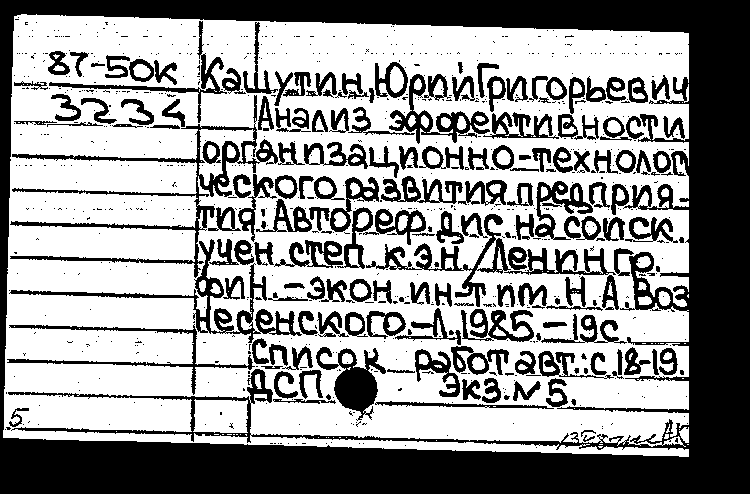 87-50к Кашутин, Юрий Григорьевич
3234 Анализ эффективности
организационно-технолог
ческого развития предприя-
тия: Автореф. дис. на соиск.
учен. степ. к.э.н. / Ленингр.
фин.-экон. ин-т им. Н.А. Воз
несенского.-Л., 1985.-19с.
Список работ авт.: с.18-19.
ДСП. Экз. № 5.
5
АК